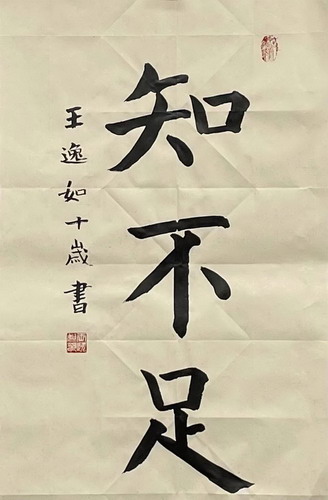 知不足
王逸如十歲書